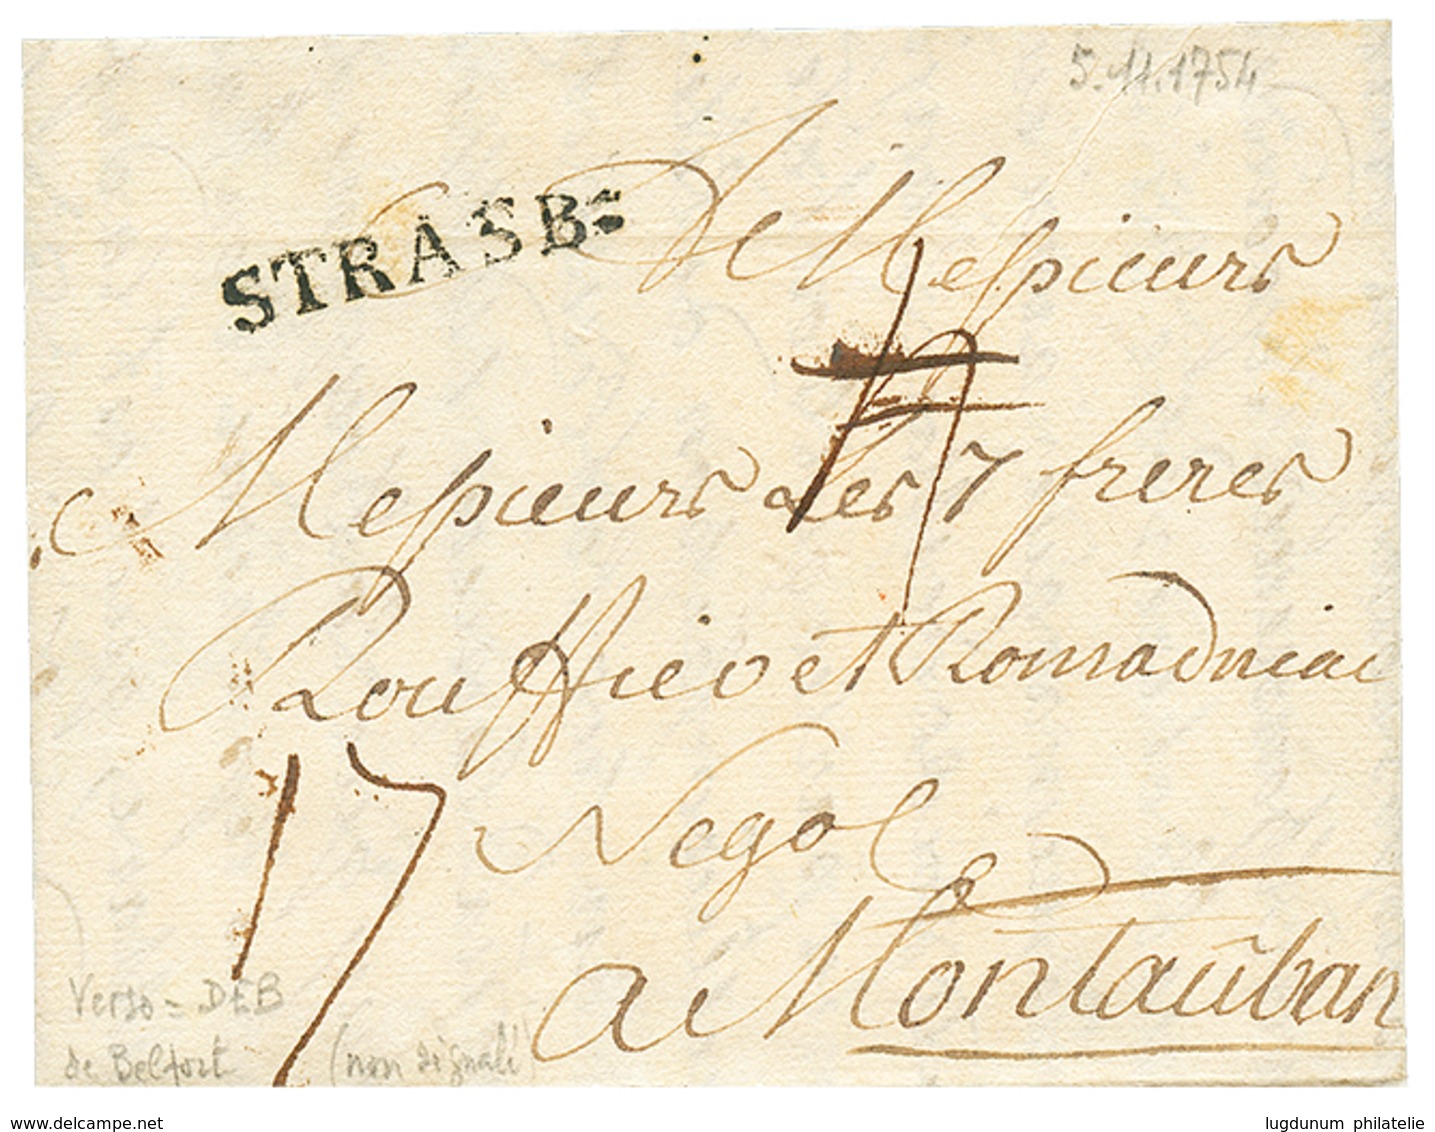 5.11.1754
STRASBG
A Messieurs
Messieurs Les 7 freres
Rouffio et Romadniac
Negot
17
a Montauban
Verso = DEB
de Belfort (non signalé)
www.delcampe.net
lugdunum philatelie